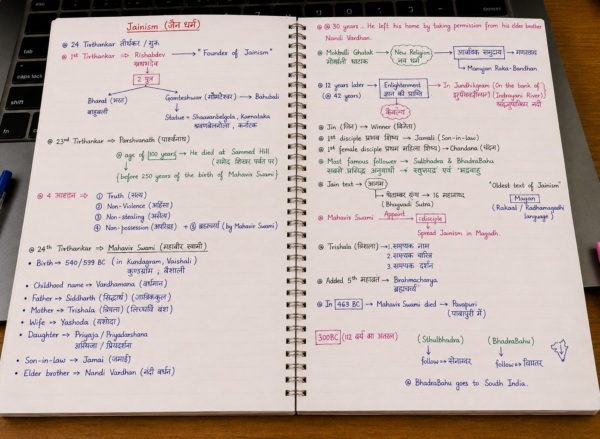 Jainism (जैन धर्म)
@ 24 Tirthankar तीर्थंकर / गुरु
@ 1st Tirthankar ⇒ Rishabdev → "Founder of Jainism"
ऋषभदेव
2 पुत्र
Bharat (भरत) Gomteshwar (गोमतेश्वर) → Bahubali
बाहुबली
Statue = Shravanbelgola, Karnataka
श्रवणबेलगोला, कर्नाटक
@ 23rd Tirthankar ⇒ Parshvanath (पार्श्वनाथ)
@ age of 100 years → He died at Sammed Hill
(सम्मेद शिखर पर्वत पर)
before 250 years of the birth of Mahavir Swami
@ 4 ⇒ ① Truth (सत्य)
② Non-Violence (अहिंसा)
③ Non-stealing (अस्तेय)
④ Non-possession (अपरिग्रह) + ⑤ ब्रह्मचर्य (by Mahavir Swami)
@ 24th Tirthankar ⇒ Mahavir Swami (महावीर स्वामी)
• Birth → 540/599 BC (in Kundagram, Vaishali)
कुण्डग्राम, वैशाली
• Childhood name → Vardhamana (वर्धमान)
• Father → Siddharth (सिद्धार्थ)
• Mother → Trishala (त्रिशला) (लिच्छवि वंश)
• Wife → Yashoda (यशोदा)
• Daughter → Priyaja / Priyadarshana
/ प्रियदर्शना
• Son-in-law → Jamai (जमाई)
• Elder brother → Nandi Vardhan (नंदी वर्धन)
@ @ 30 years .. He left his home by taking permission from his elder brother
Nandi Vardhan.
@ Mokballi Ghatak → New Religion → समुदाय →
घाटक नव धर्म
Mamgan Raka-Bandhan
@ 12 years later → Enlightenment → In Jundhikgram (On the bank of
(@ 42 years) ज्ञान की प्राप्ति Indrayani River)
कैवल्य
@ Jin (जिन) → Winner (विजेता)
@ 1st disciple शिष्य → Jamali (Son-in-law)
@ 1st female disciple प्रथम महिला शिष्य → Chandana (चंदना)
@ Most famous follower → Sulbhadra & BhadraBahu
सबसे प्रसिद्ध अनुयायी → एवं भद्रबाहु
@ Jain text → आगम "Oldest text of Jainism"
→ 16
(Bhagvadi Sutra)
Magan
(Rakaal / Radhamagadhi
language)
@ Mahavir Swami Appoint → 1 disciple
Spread Jainism in Magadh.
@ Trishala (त्रिशला) → 1. सम्यक
2. सम्यक चरित्र
3. सम्यक दर्शन
@ Added 5th महाव्रत → Brahmacharya
ब्रह्मचर्य
@ In 463 BC → Mahavir Swami died → Pavapuri
(पावापुरी में)
300BC (12 वर्ष का अकाल) (Sthulbhadra) (BhadraBahu)
follow ⇒ follow ⇒
@ BhadraBahu goes to South India.